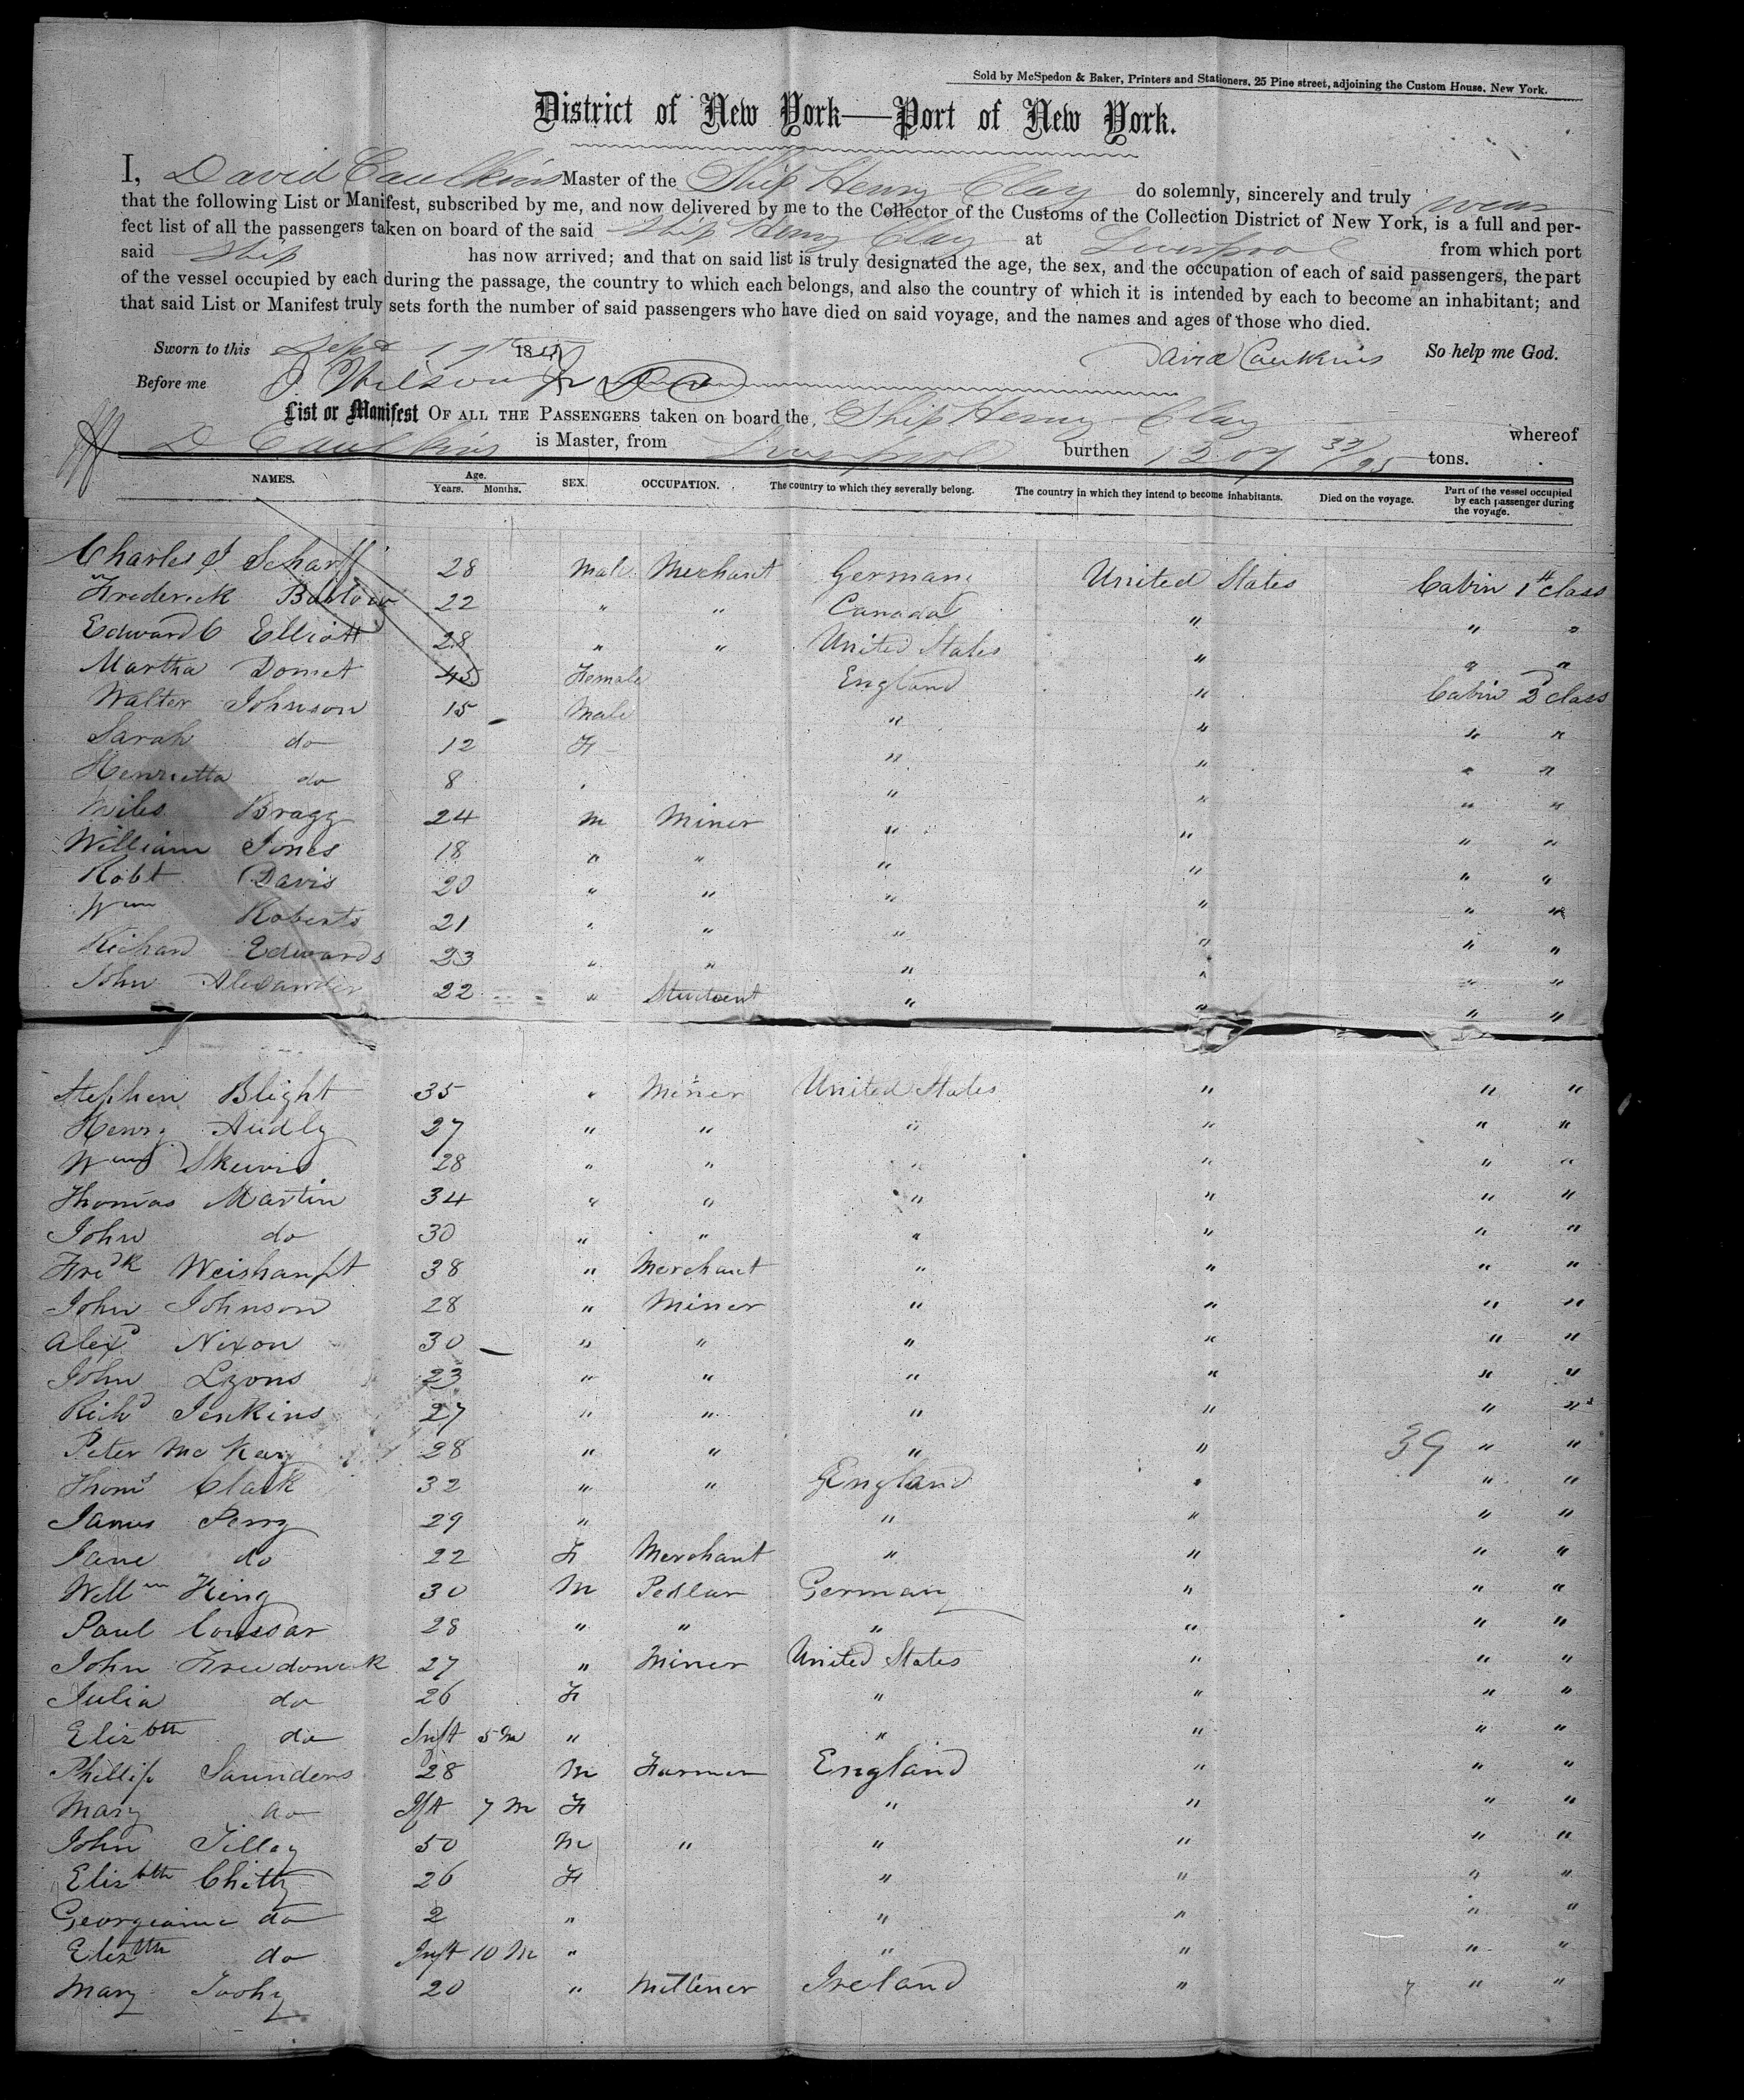 Sold by McSpedon & Baker, Printers and Stationers, 25 Pine street, adjoining the Custom House, New York.
District of New York—Port of New York.
I, David Caulkins Master of the Ship Henry Clay do solemnly, sincerely and truly swear
that the following List or Manifest, subscribed by me, and now delivered by me to the Collector of the Customs of the Collection District of New York, is a full and per-
fect list of all the passengers taken on board of the said Ship Henry Clay at Liverpool from which port
said Ship has now arrived; and that on said list is truly designated the age, the sex, and the occupation of each of said passengers, the part
of the vessel occupied by each during the passage, the country to which each belongs, and also the country of which it is intended by each to become an inhabitant; and
that said List or Manifest truly sets forth the number of said passengers who have died on said voyage, and the names and ages of those who died.
Sworn to this Sept 17 18 David Caulkins So help me God.
Before me
List or Manifest OF ALL THE PASSENGERS taken on board the, Ship Henry Clay whereof
D Caulkins is Master, from Liverpool burthen 1207 32/95 tons.
NAMES. Age. Years. Months. SEX. OCCUPATION. The country to which they severally belong. The country in which they intend to become inhabitants. Died on the voyage. Part of the vessel occupied by each passenger during the voyage.
Charles J Scharff 28 Male Merchant Germany United States Cabin 1st class
Frederick 22 " " Canada " " "
Edward C Elliott 28 " " United States " " "
Martha Domet 45 Female England " Cabin 2d class
Walter Johnson 15 Male " " " "
Sarah do 12 F " " " "
Henrietta do 8 " " " " "
Miles Bragg 24 M Miner " " " "
William Jones 18 " " " " " "
Robt Davis 20 " " " " " "
Wm Roberts 21 " " " " " "
Richard Edwards 23 " " " " " "
John Alexander 22 " Student " " " "
Stephen Blight 35 " Miner United States " " "
Henry Audly 27 " " " " " "
Wm Skewis 28 " " " " " "
Thomas Martin 34 " " " " " "
John do 30 " " " " " "
Fredk Weishanpt 38 " Merchant " " " "
John Johnson 28 " Miner " " " "
Alexd Nixon 30 " " " " " "
John Lyons 23 " " " " " "
Richd Jenkins 27 " " " " " "
Peter McKay 28 " " " " 39 " "
Thoms Clark 32 " " England " " "
James Perry 29 " " " " "
Jane do 22 F Merchant " " " "
Willm King 30 M Pedlar Germany " " "
Paul Coussar 28 " " " " " "
John 27 " Miner United States " " "
Julia do 26 F " " " "
Elizbth do Inft 5 m " " " " "
Phillip Saunders 28 M Farmer England " " "
Mary do Ift 7 M F " " " "
John Tilley 50 M " " " " "
Elizbth Chitty 26 F " " " "
Georgeanna do 2 " " " " "
Elizbth do Inft 10 M " " " " "
Mary Toohy 20 " Millener Ireland " " "